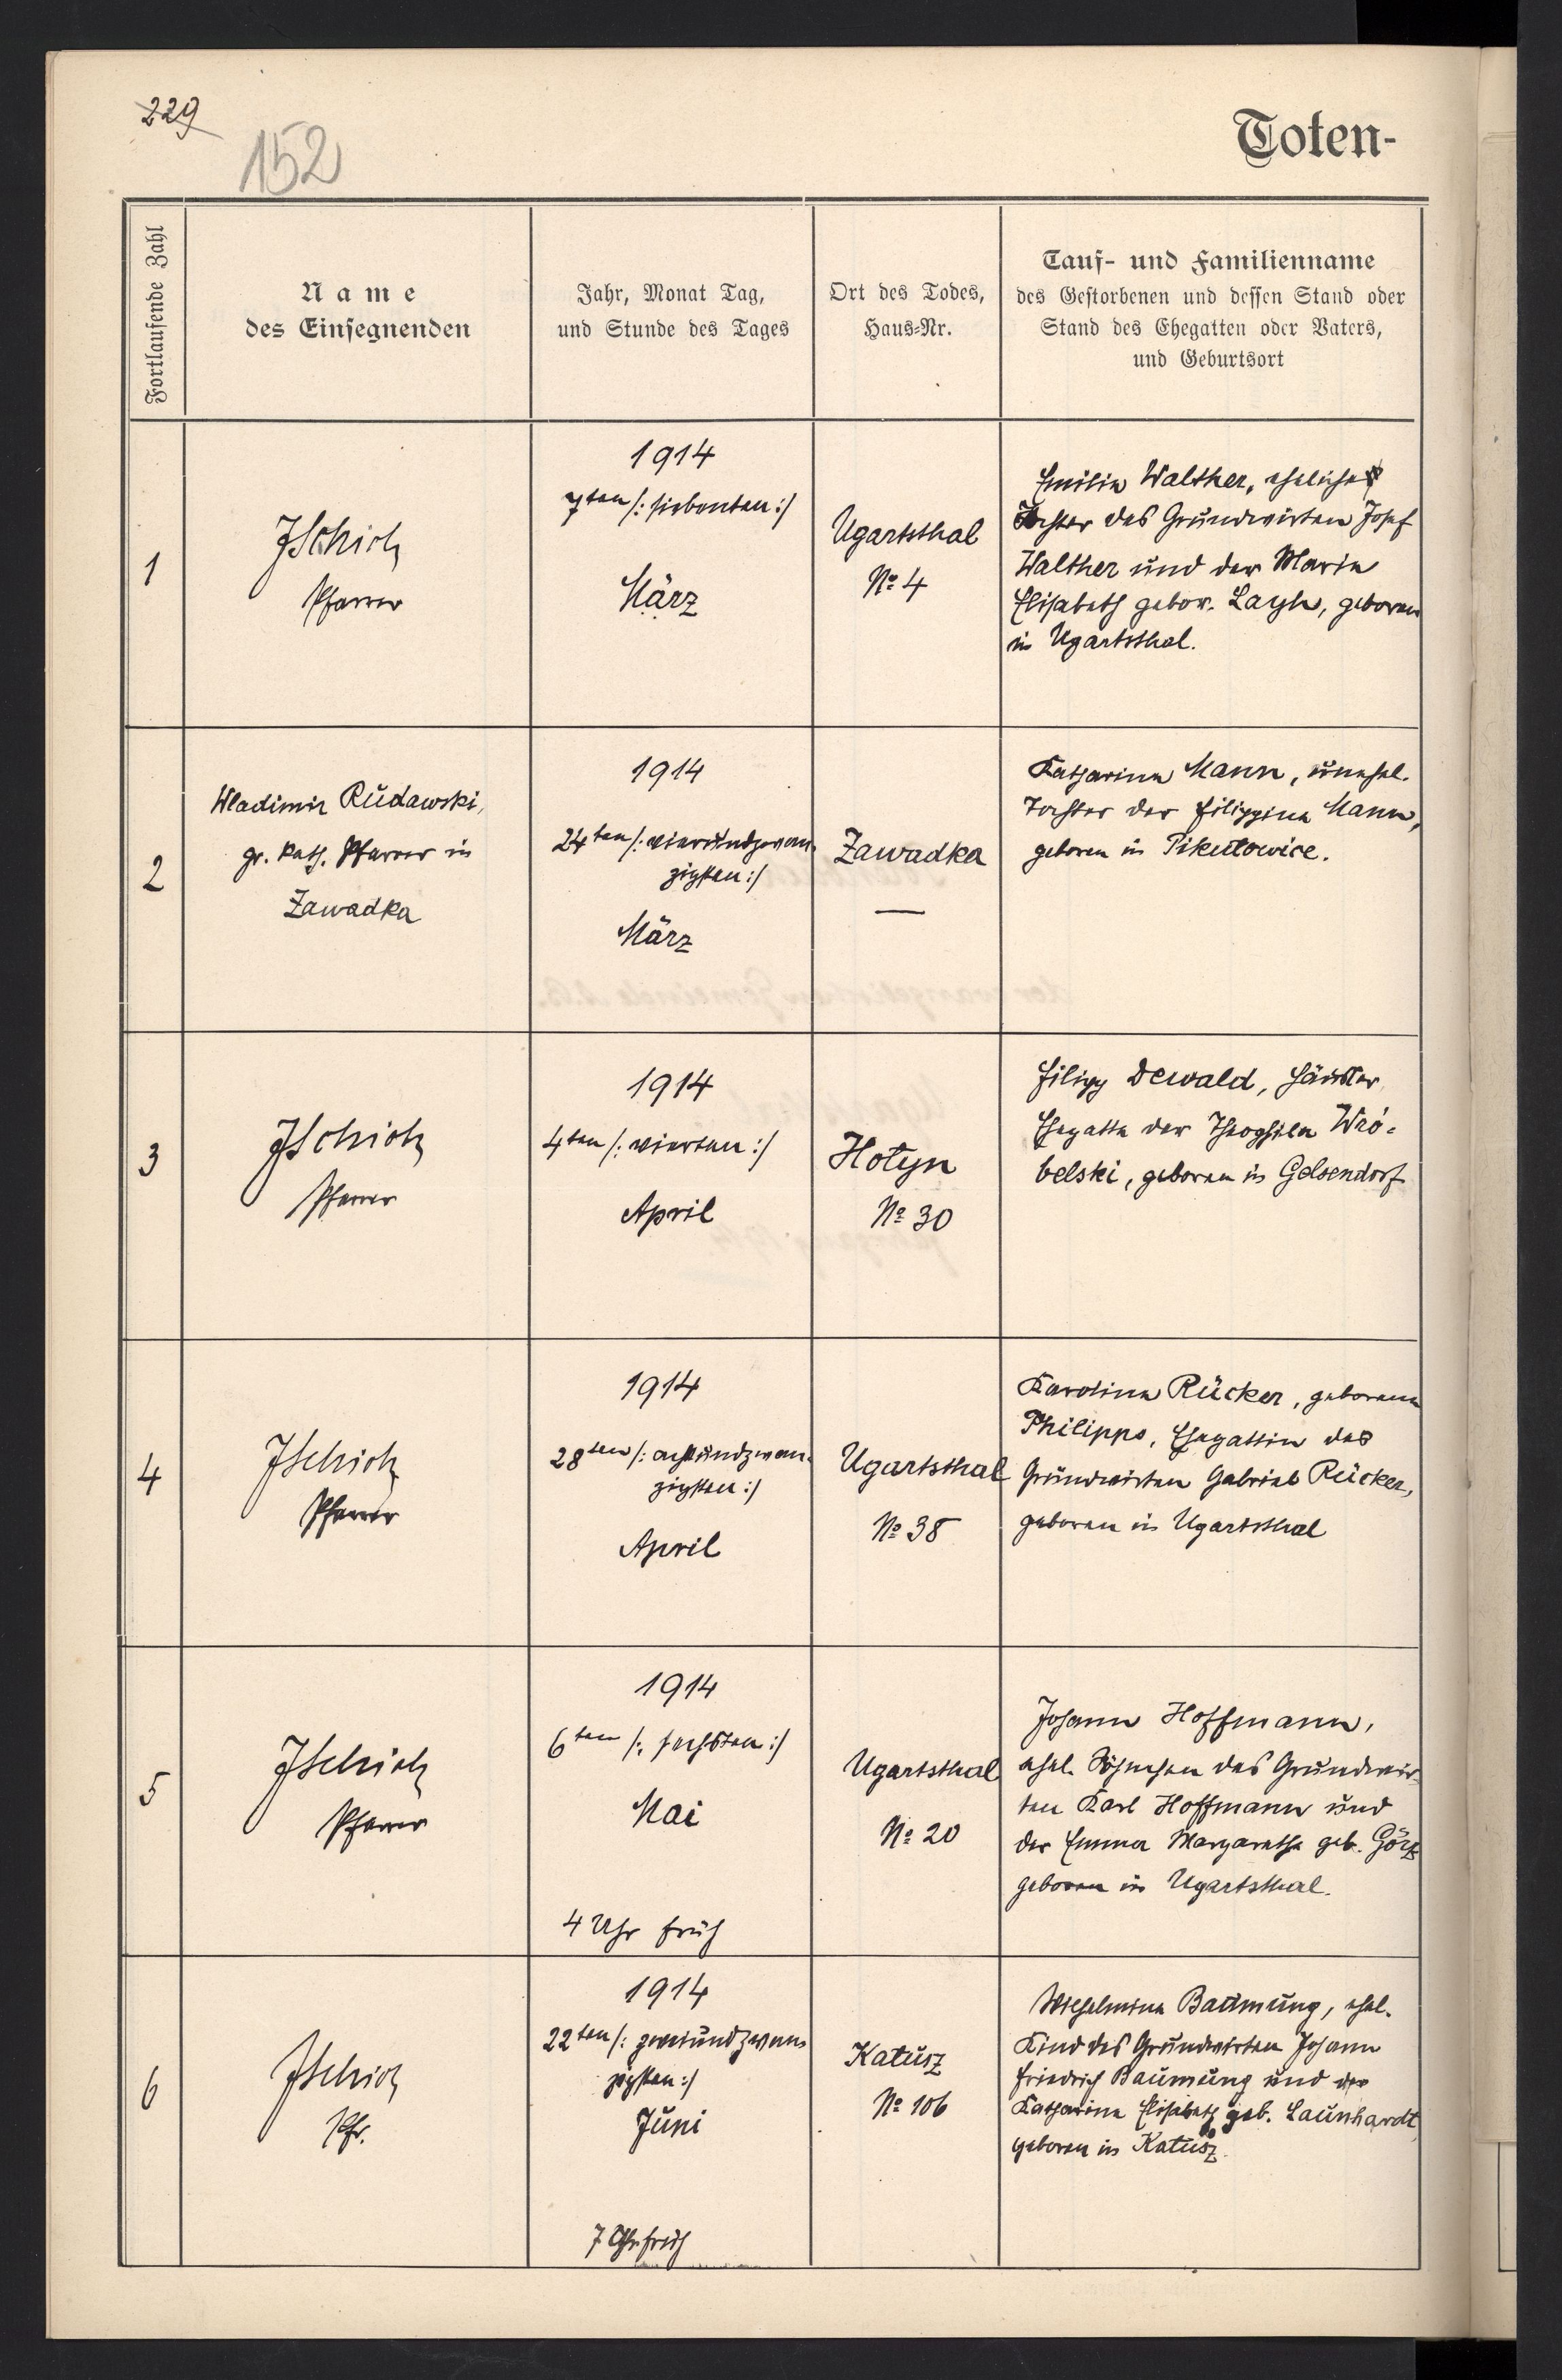 229
152
Toten-
Fortlaufende Zahl
Name
des Einsegnenden
Jahr, Monat Tag,
und Stunde des Tages
Ort des Todes,
Haus-Nr.
Tauf- und Familienname
des Gestorbenen und dessen Stand oder
Stand des Ehegatten oder Vaters,
und Geburtsort
1
JSchick
Pfarrer
1914
7ten /: siebenten :/
März
Ugartsthal
No 4
Emilie Walther, eheliche
Tochter des Grundwirten Josef
Walther und der Marie
Elisabeth gebor. Layh, geboren
in Ugartsthal.
2
Wladimir Rudawski,
gr. kath. Pfarrer in
Zawadka
1914
24ten /: vierundzwan-
zigsten :/
März
Zawadka
—
Katharina Mann, unehel.
Tochter der Filippine Mann,
geboren in Pikulowice.
3
JSchick
Pfarrer
1914
4ten /: vierten :/
April
Hołyn
No 30
Filipp Dewald, Häusler,
Ehegatte der Theophila Wró-
belski, geboren in Gelsendorf
4
JSchick
Pfarrer
1914
28ten /: achtundzwan-
zigsten :/
April
Ugartsthal
No 38
Karolina Rücker, geborene
Philipps, Ehegattin des
Grundwirten Gabriel Rücker,
geboren in Ugartsthal
5
JSchick
Pfarrer
1914
6ten /: sechsten :/
Mai
4 Uhr früh
Ugartsthal
No 20
Johann Hoffmann,
ehel. Söhnchen des Grundwir-
ten Karl Hoffmann und
der Emma Margaretha geb. Görz
geboren in Ugartsthal.
6
JSchick
Pfr.
1914
22ten /: zweiundzwan-
zigsten :/
Juni
7 Uhr früh
Katusz
No 106
Wilhelmina Baumung, ehel.
Kind des Grundwirten Johann
Friedrich Baumung und der
Katharina Elisabeth geb. Launhardt,
geboren in Katusz.